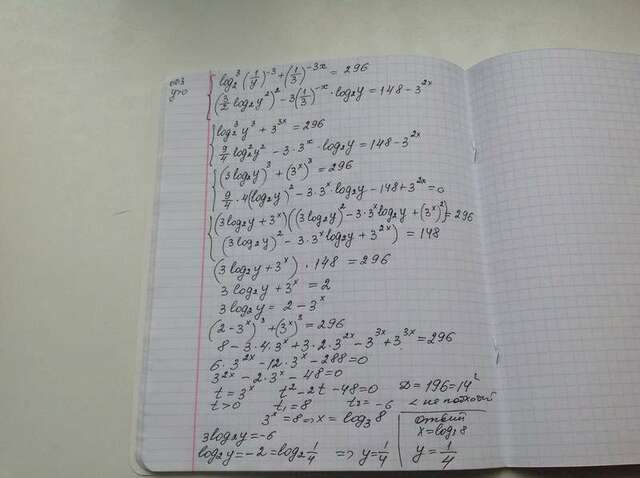 ОДЗ
y>0
log₂³(1/y)⁻³+(1/3)⁻³ˣ = 296
(3/2 log₂y²)² - 3(1/3)⁻ˣ · log₂y = 148 - 3²ˣ
log₂³y³ + 3³ˣ = 296
9/4 log₂²y² - 3·3ˣ · log₂y = 148 - 3²ˣ
(3log₂y)³ + (3ˣ)³ = 296
9/4 · 4(log₂y)² - 3·3ˣ log₂y - 148 + 3²ˣ = 0
(3log₂y + 3ˣ)((3log₂y)² - 3·3ˣ log₂y + (3ˣ)²) = 296
(3log₂y)² - 3·3ˣ log₂y + 3²ˣ) = 148
(3log₂y + 3ˣ) · 148 = 296
3log₂y + 3ˣ = 2
3log₂y = 2 - 3ˣ
(2 - 3ˣ)³ + (3ˣ)³ = 296
8 - 3·4·3ˣ + 3·2·3²ˣ - 3³ˣ + 3³ˣ = 296
6·3²ˣ - 12·3ˣ - 288 = 0
3²ˣ - 2·3ˣ - 48 = 0
t = 3ˣ t² - 2t - 48 = 0 D = 196 = 14²
t>0 t₁ = 8 t₂ = -6 < не
3ˣ = 8 => x = log₃8
3log₂y = -6
log₂y = -2 = log₂ 1/4 => y = 1/4
ответ
x = log₃8
y = 1/4